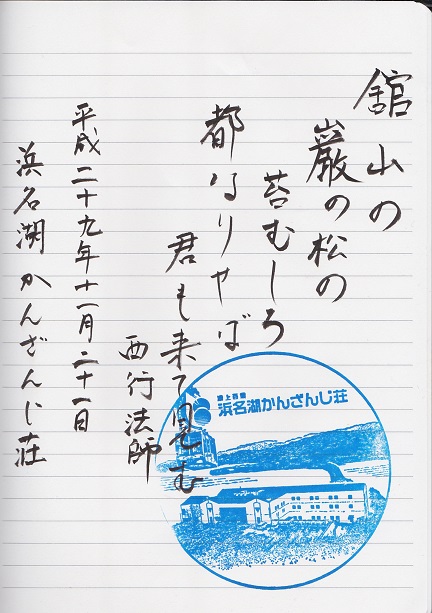 舘山の
巌の松の
苔むしろ
都なりやば
君も来て見む
西行法師
平成二十九年十一月二十一日
浜名湖かんざんじ荘
浜名湖かんざんじ荘